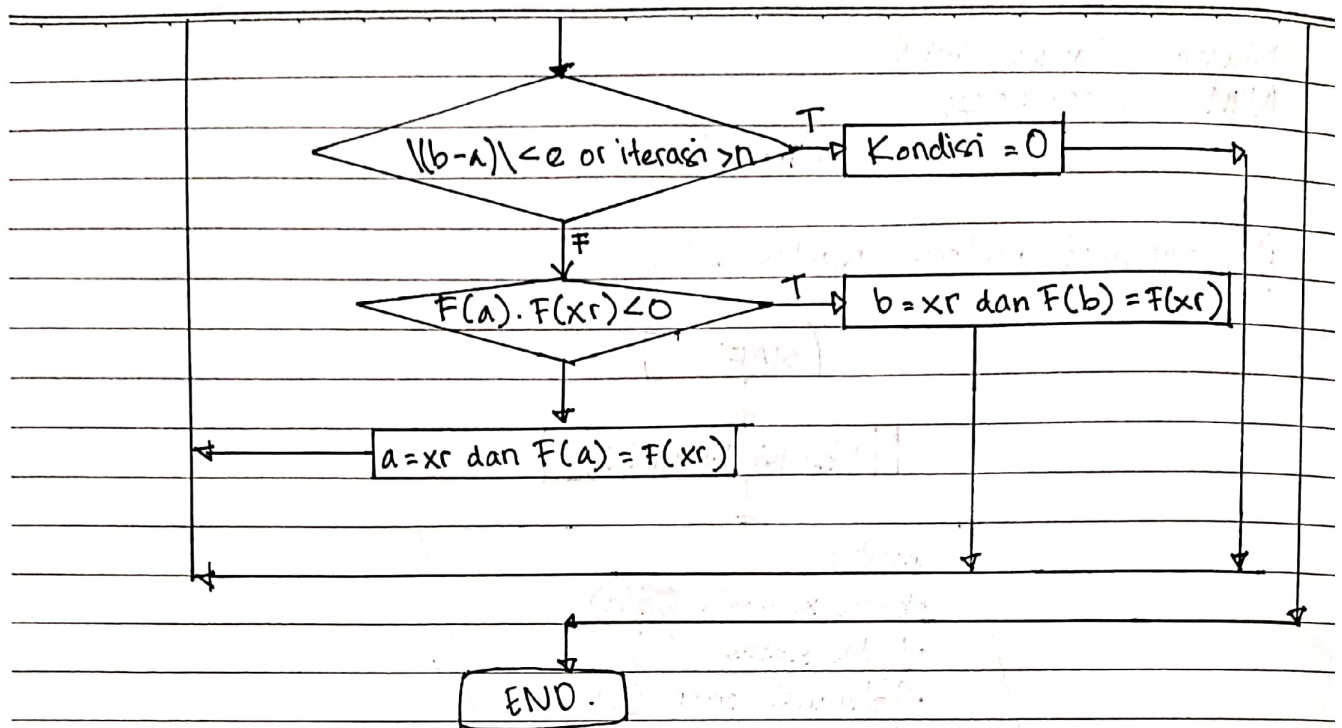 |(b-a)| <e or iterasi >n
T
Kondisi = 0
F
F(a). F(xr) <0
T
b = xr dan F(b) = F(xr)
a = xr dan F(a) = F(xr)
END.